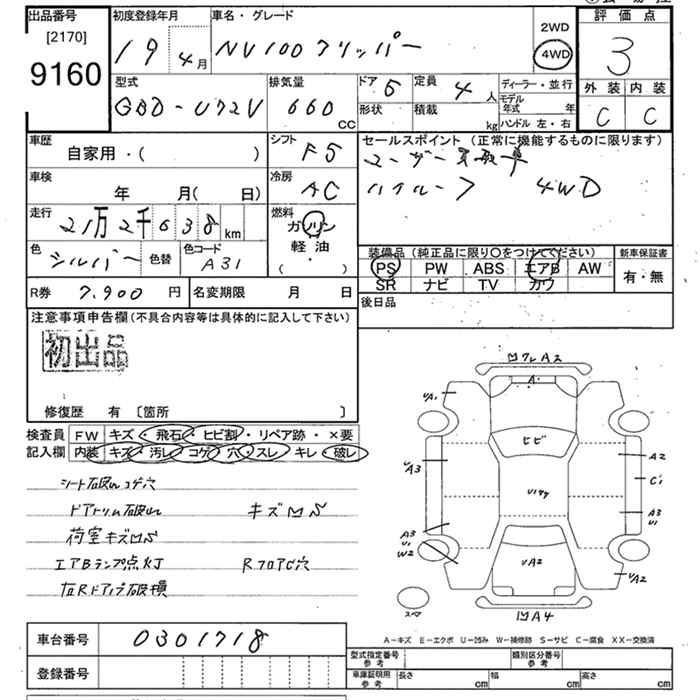 出品番号
[2170]
9160
初度登録年月
19 4月
車名・グレード
NV100クリッパー
2WD
4WD
評価点
3
外装 内装
C C
型式
GBD-U72V
排気量
660
CC
ドア 5
定員 4人
ディーラー・並行
形状
積載
kg
モデル年式 年
ハンドル 左・右
車歴
自家用・( )
シフト
F5
セールスポイント (正常に機能するものに限ります)
ユーザー買取車
ハイルーフ 4WD
車検
年 月( 日)
冷房
AC
走行
21万2千638km
燃料
ガソリン
軽油
( )
色
シルバー
色替
色コード
A31
装備品 (純品に限り○をつけてください)
PS PW ABS エアB AW
SR ナビ TV カワ
新車保証書
有・無
R券 7,900円
名変期限 月 日
後日品
注意事項申告欄(不具合内容等は具体的に記入して下さい)
初出品
修復歴 有 〔箇所 〕
検査員
記入欄
FW キズ・飛石・ヒビ割・リペア跡・×要
内装 キズ・汚レ・コゲ・穴・スレ・キレ・破レ
シート破レコゲ穴
ドアトリム破レ キズ凹S
荷室キズ凹S
エアBランプ点灯 RフロアC穴
右Rドア破損
凹ワレA2
A
UA1
ヒビ
UA3
A2
C1
A3
U1
A3
U1
W2
UA2
UA2
凹A4
スペア
A-キズ E-エクボ U-凹み W-補修跡 S-サビ C-腐食 XX-交換済
車台番号
0301718
登録番号
型式指定番号
参考
類別区分番号
参考
車庫証明用
参考
長さ cm
幅 cm
高さ cm